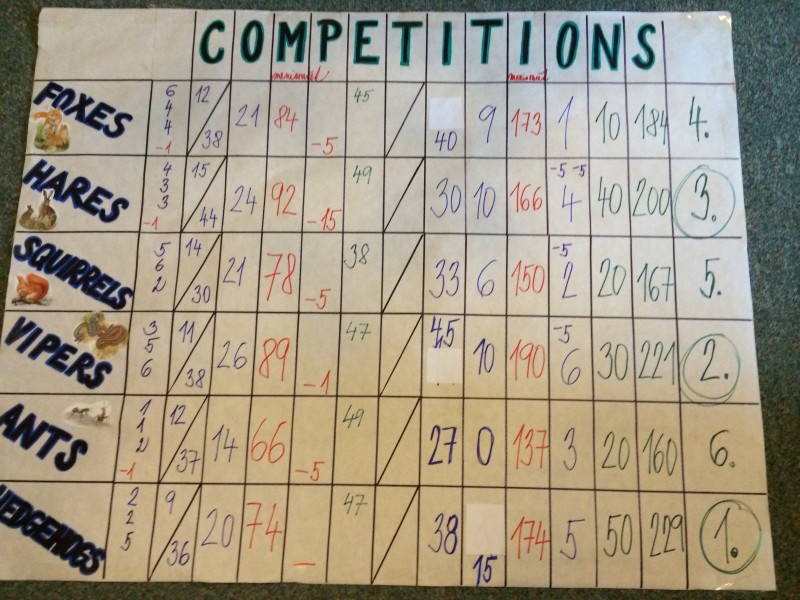 COMPETITIONS
FOXES 6 4 4 -1 12 38 21 84 -5 45 40 9 173 1 10 184 4.
HARES 4 3 3 -1 15 44 24 92 -15 49 30 10 166 -5 -5 4 40 200 3.
SQUIRRELS 5 6 2 14 30 21 78 -5 38 33 6 150 -5 2 20 167 5.
VIPERS 3 5 6 11 38 26 89 -1 47 45 10 190 -5 6 30 221 2.
ANTS 1 1 2 -1 12 37 14 66 -5 49 27 0 137 3 20 160 6.
HEDGEHOGS 2 2 5 9 36 20 74 – 47 38 15 174 5 50 229 1.